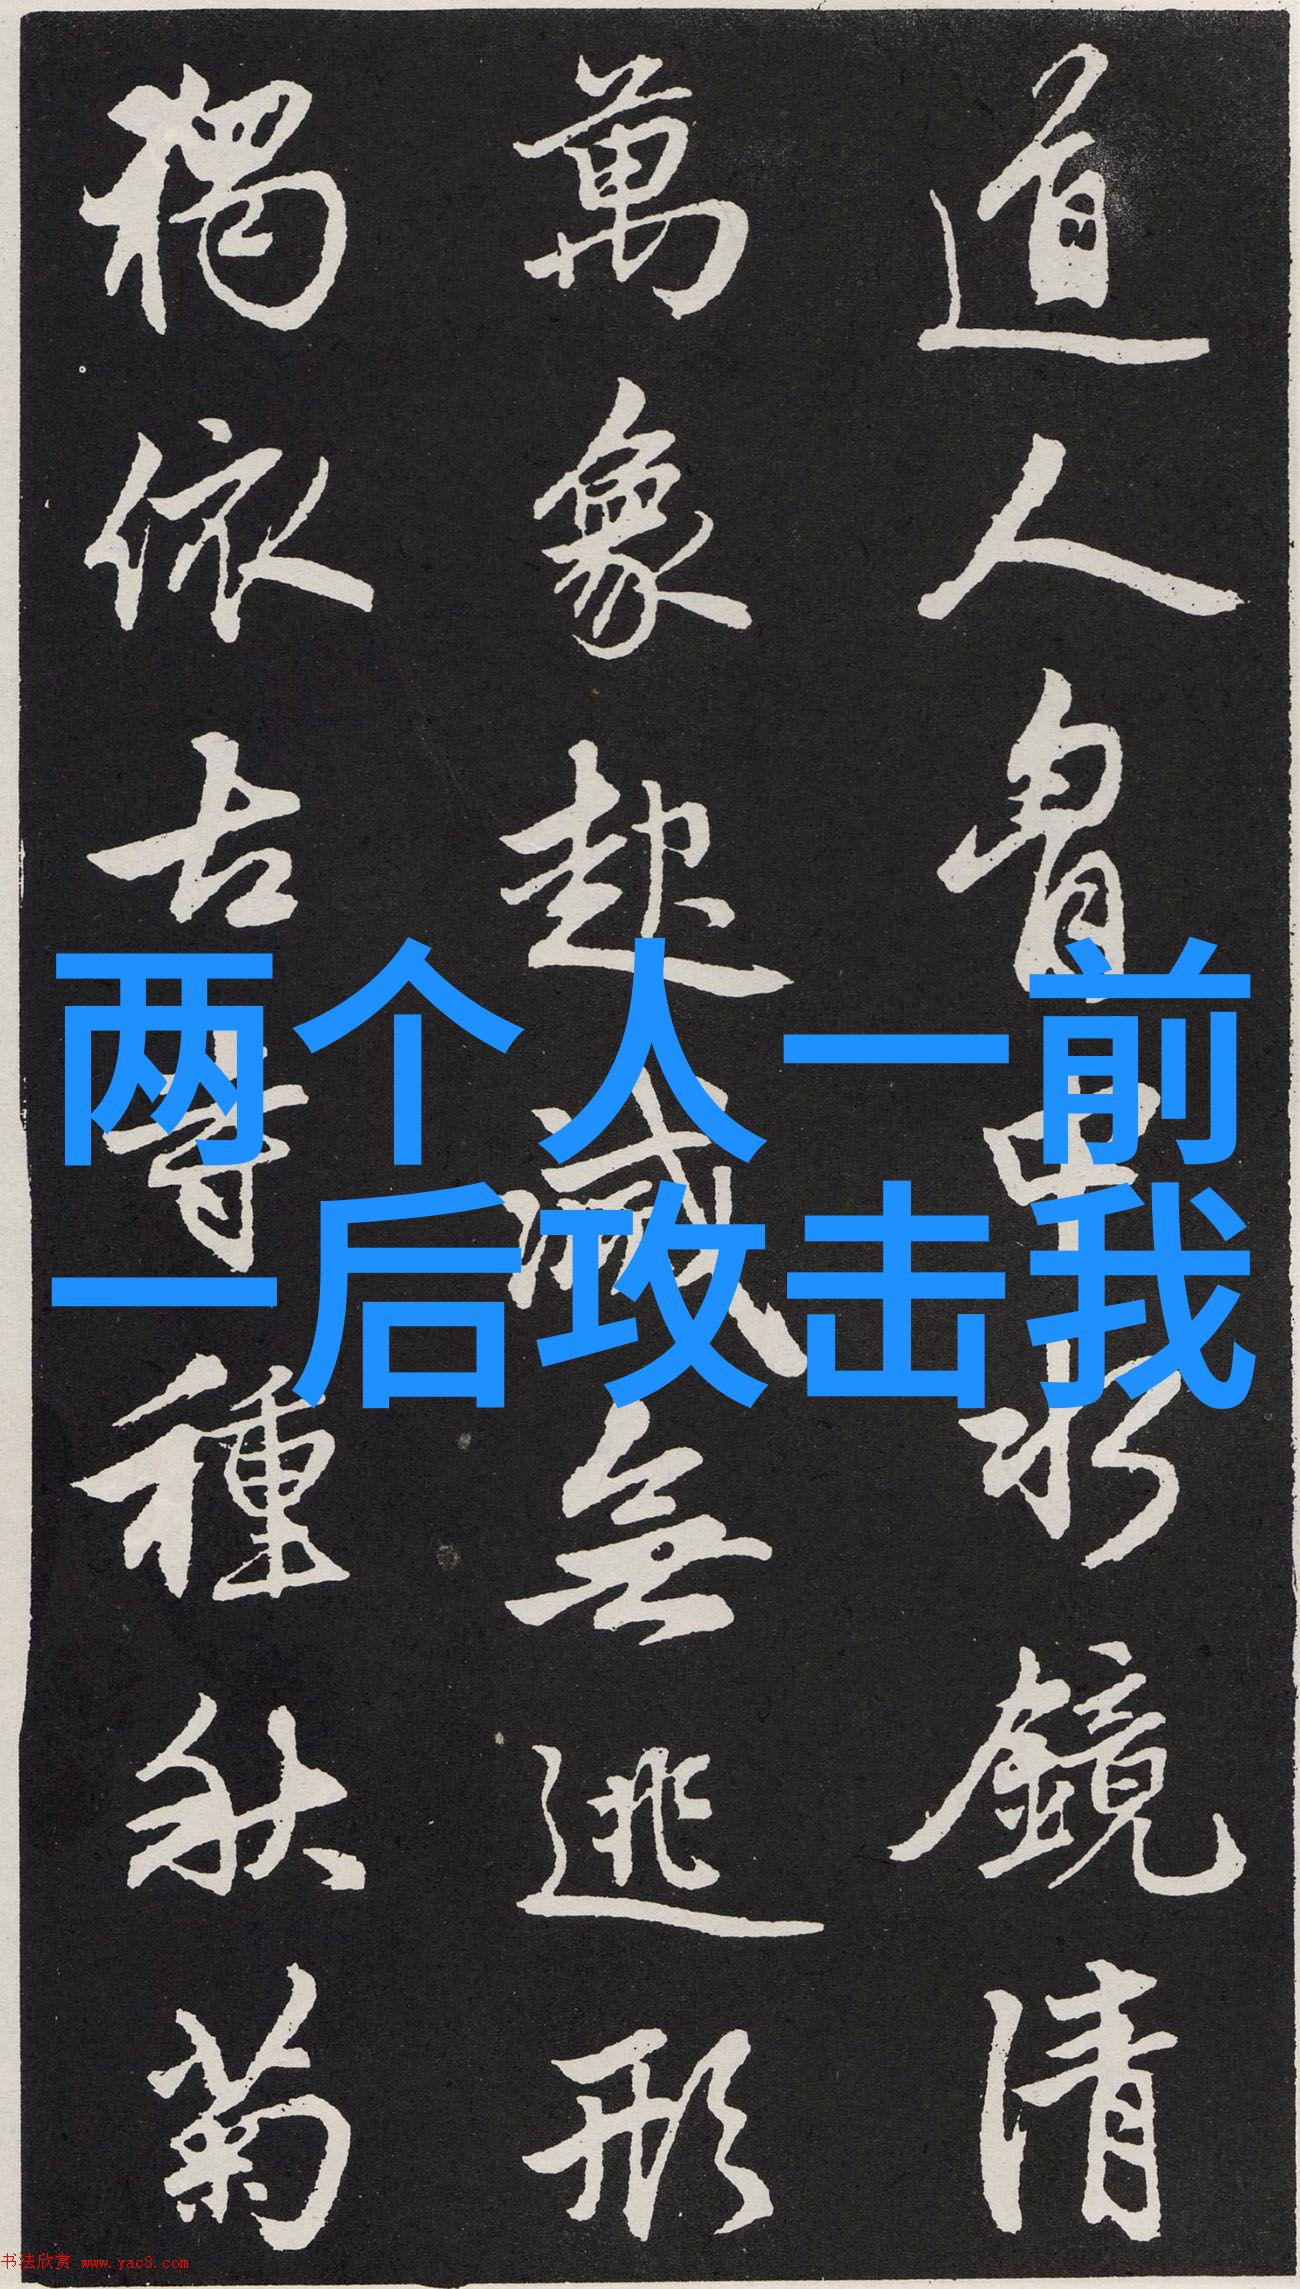 道人胷中水鏡清
萬象起滅無逃形
獨依古寺種秋菊
两个人一前
一后攻击我
书法欣赏 www.yac8.com